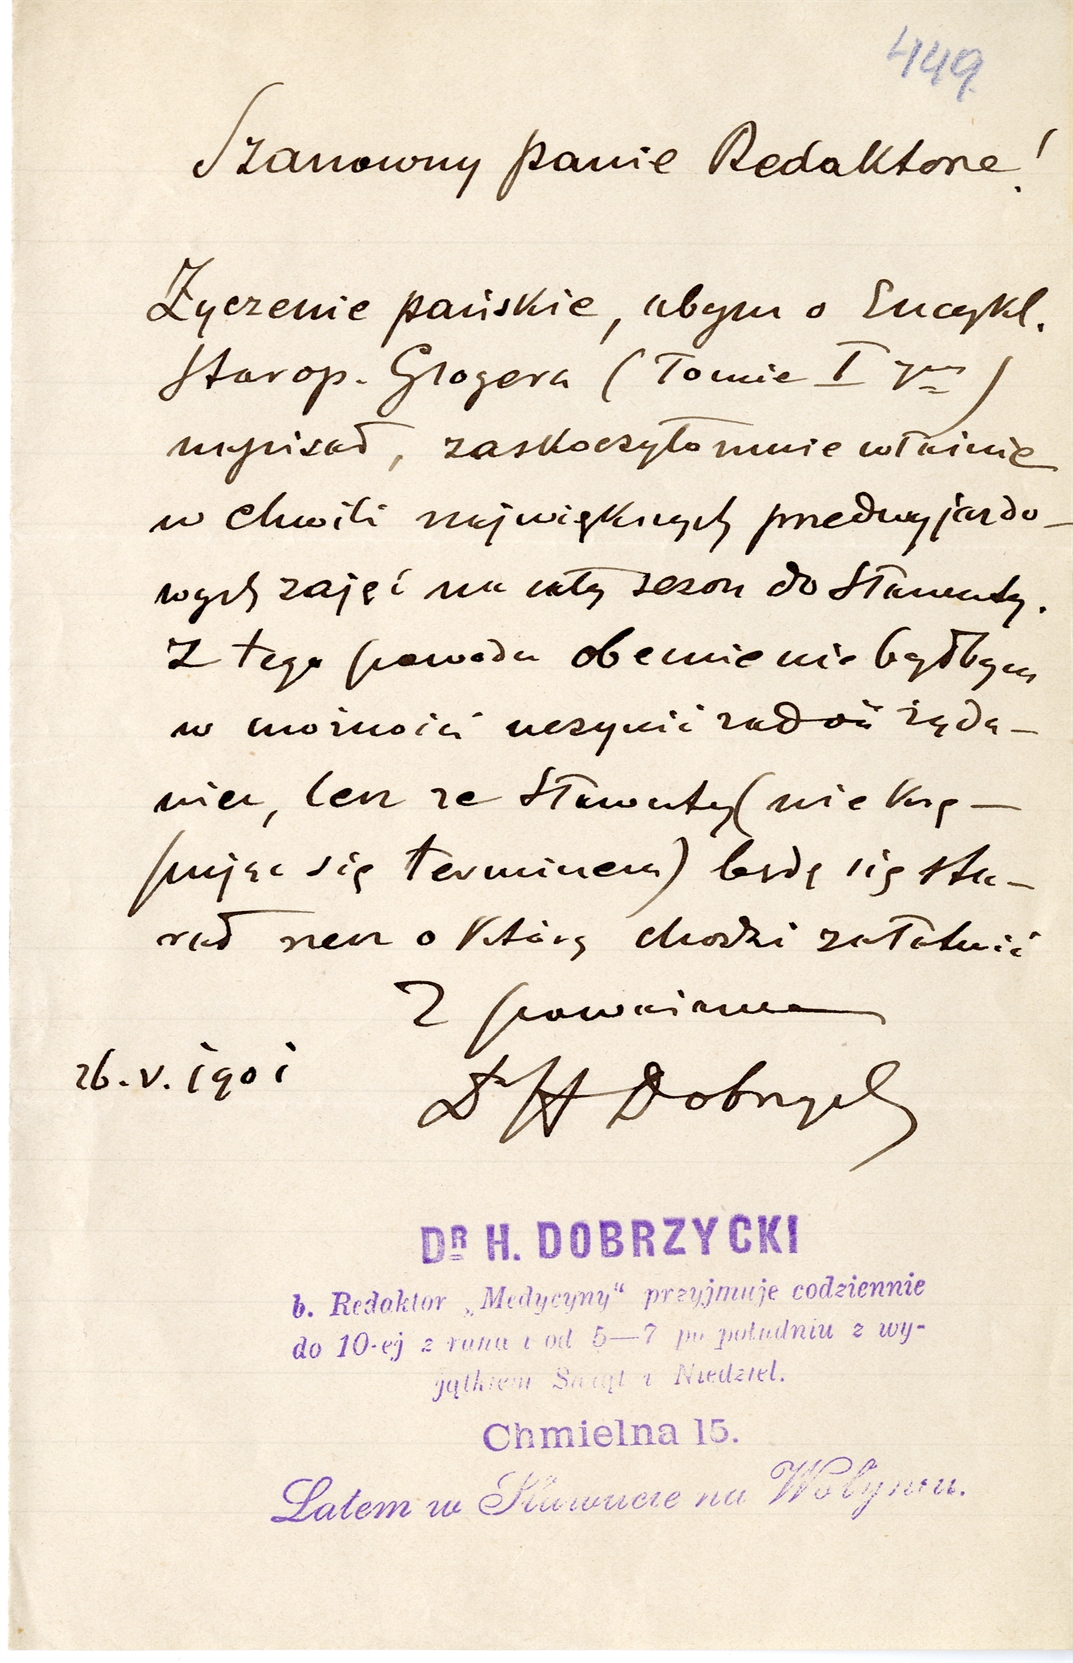 449
Szanowny panie Redaktorze!
Życzenie pańskie, abym o Encykl.
Starop. Glogera (Tomie I ym)
napisał, zaskoczyło mnie właśnie
w chwili największych przedwyjazdo-
wych zajęć na cały sezon do Sławuty.
Z tego powodu obecnie nie byłbym
w możności uczynić zadość żąda-
niu, lecz ze Sławuty (nie krę-
pując się terminem) będę się sta-
rał rzecz o którą chodzi załatwić
Z poważaniem
26.V.1901
Dr H Dobrzycki
DR H. DOBRZYCKI
b. Redaktor „Medycyny“ przyjmuje codziennie
do 10-ej z rana i od 5—7 po południu z wy-
jątkiem Świąt i Niedziel.
Chmielna 15.
Latem w Sławucie na Wołyniu.